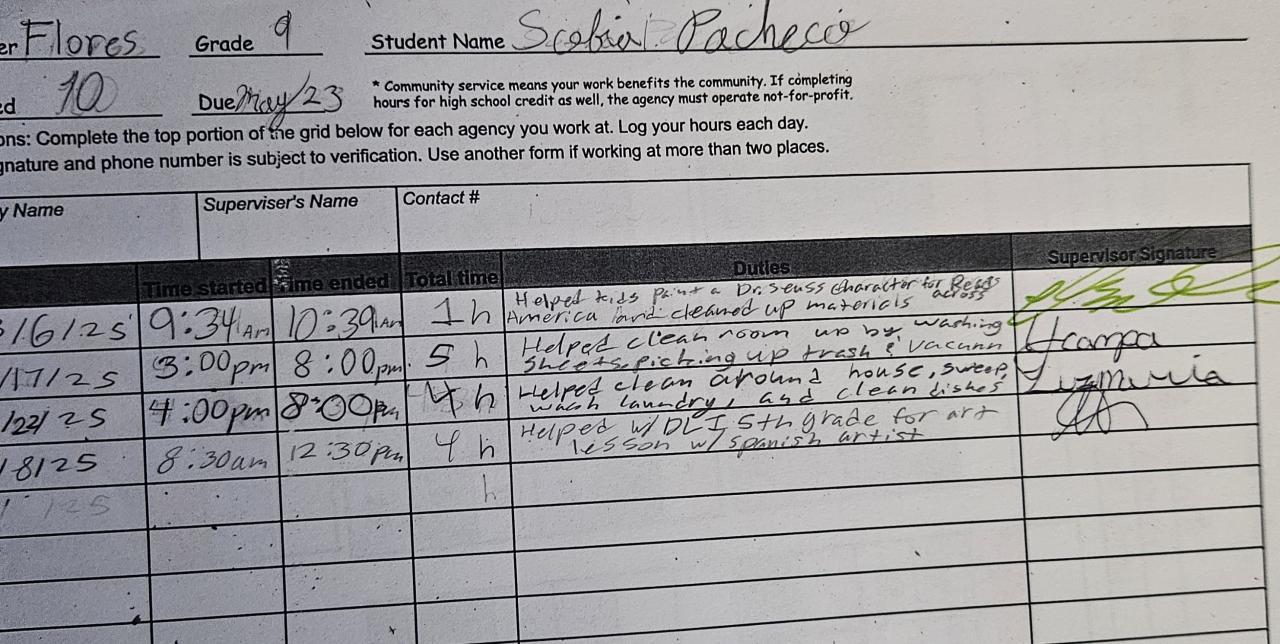 er Flores Grade 9 Student Name Pacheco
ed 10 Due May/23 * Community service means your work benefits the community. If completing
hours for high school credit as well, the agency must operate not-for-profit.
ons: Complete the top portion of the grid below for each agency you work at. Log your hours each day.
gnature and phone number is subject to verification. Use another form if working at more than two places.
y Name Superviser's Name Contact #
Time started Time ended Total time Duties Supervisor Signature
/6/25 9:34 Am 10:39 Am 1 h Helped kids paint a Dr. Seuss character for Read across
America and cleaned up materials
/17/25 3:00pm 8:00pm. 5 h Helped clean room up by washing
sheets, picking up trash & vacuum
/22/25 4:00pm 8:00pm 4 h Helped clean around house, sweep,
wash laundry, and clean dishes
/8/25 8:30am 12:30pm 4 h Helped w/ DLI 5th grade for art
lesson w/ spanish artist
/ /25 h